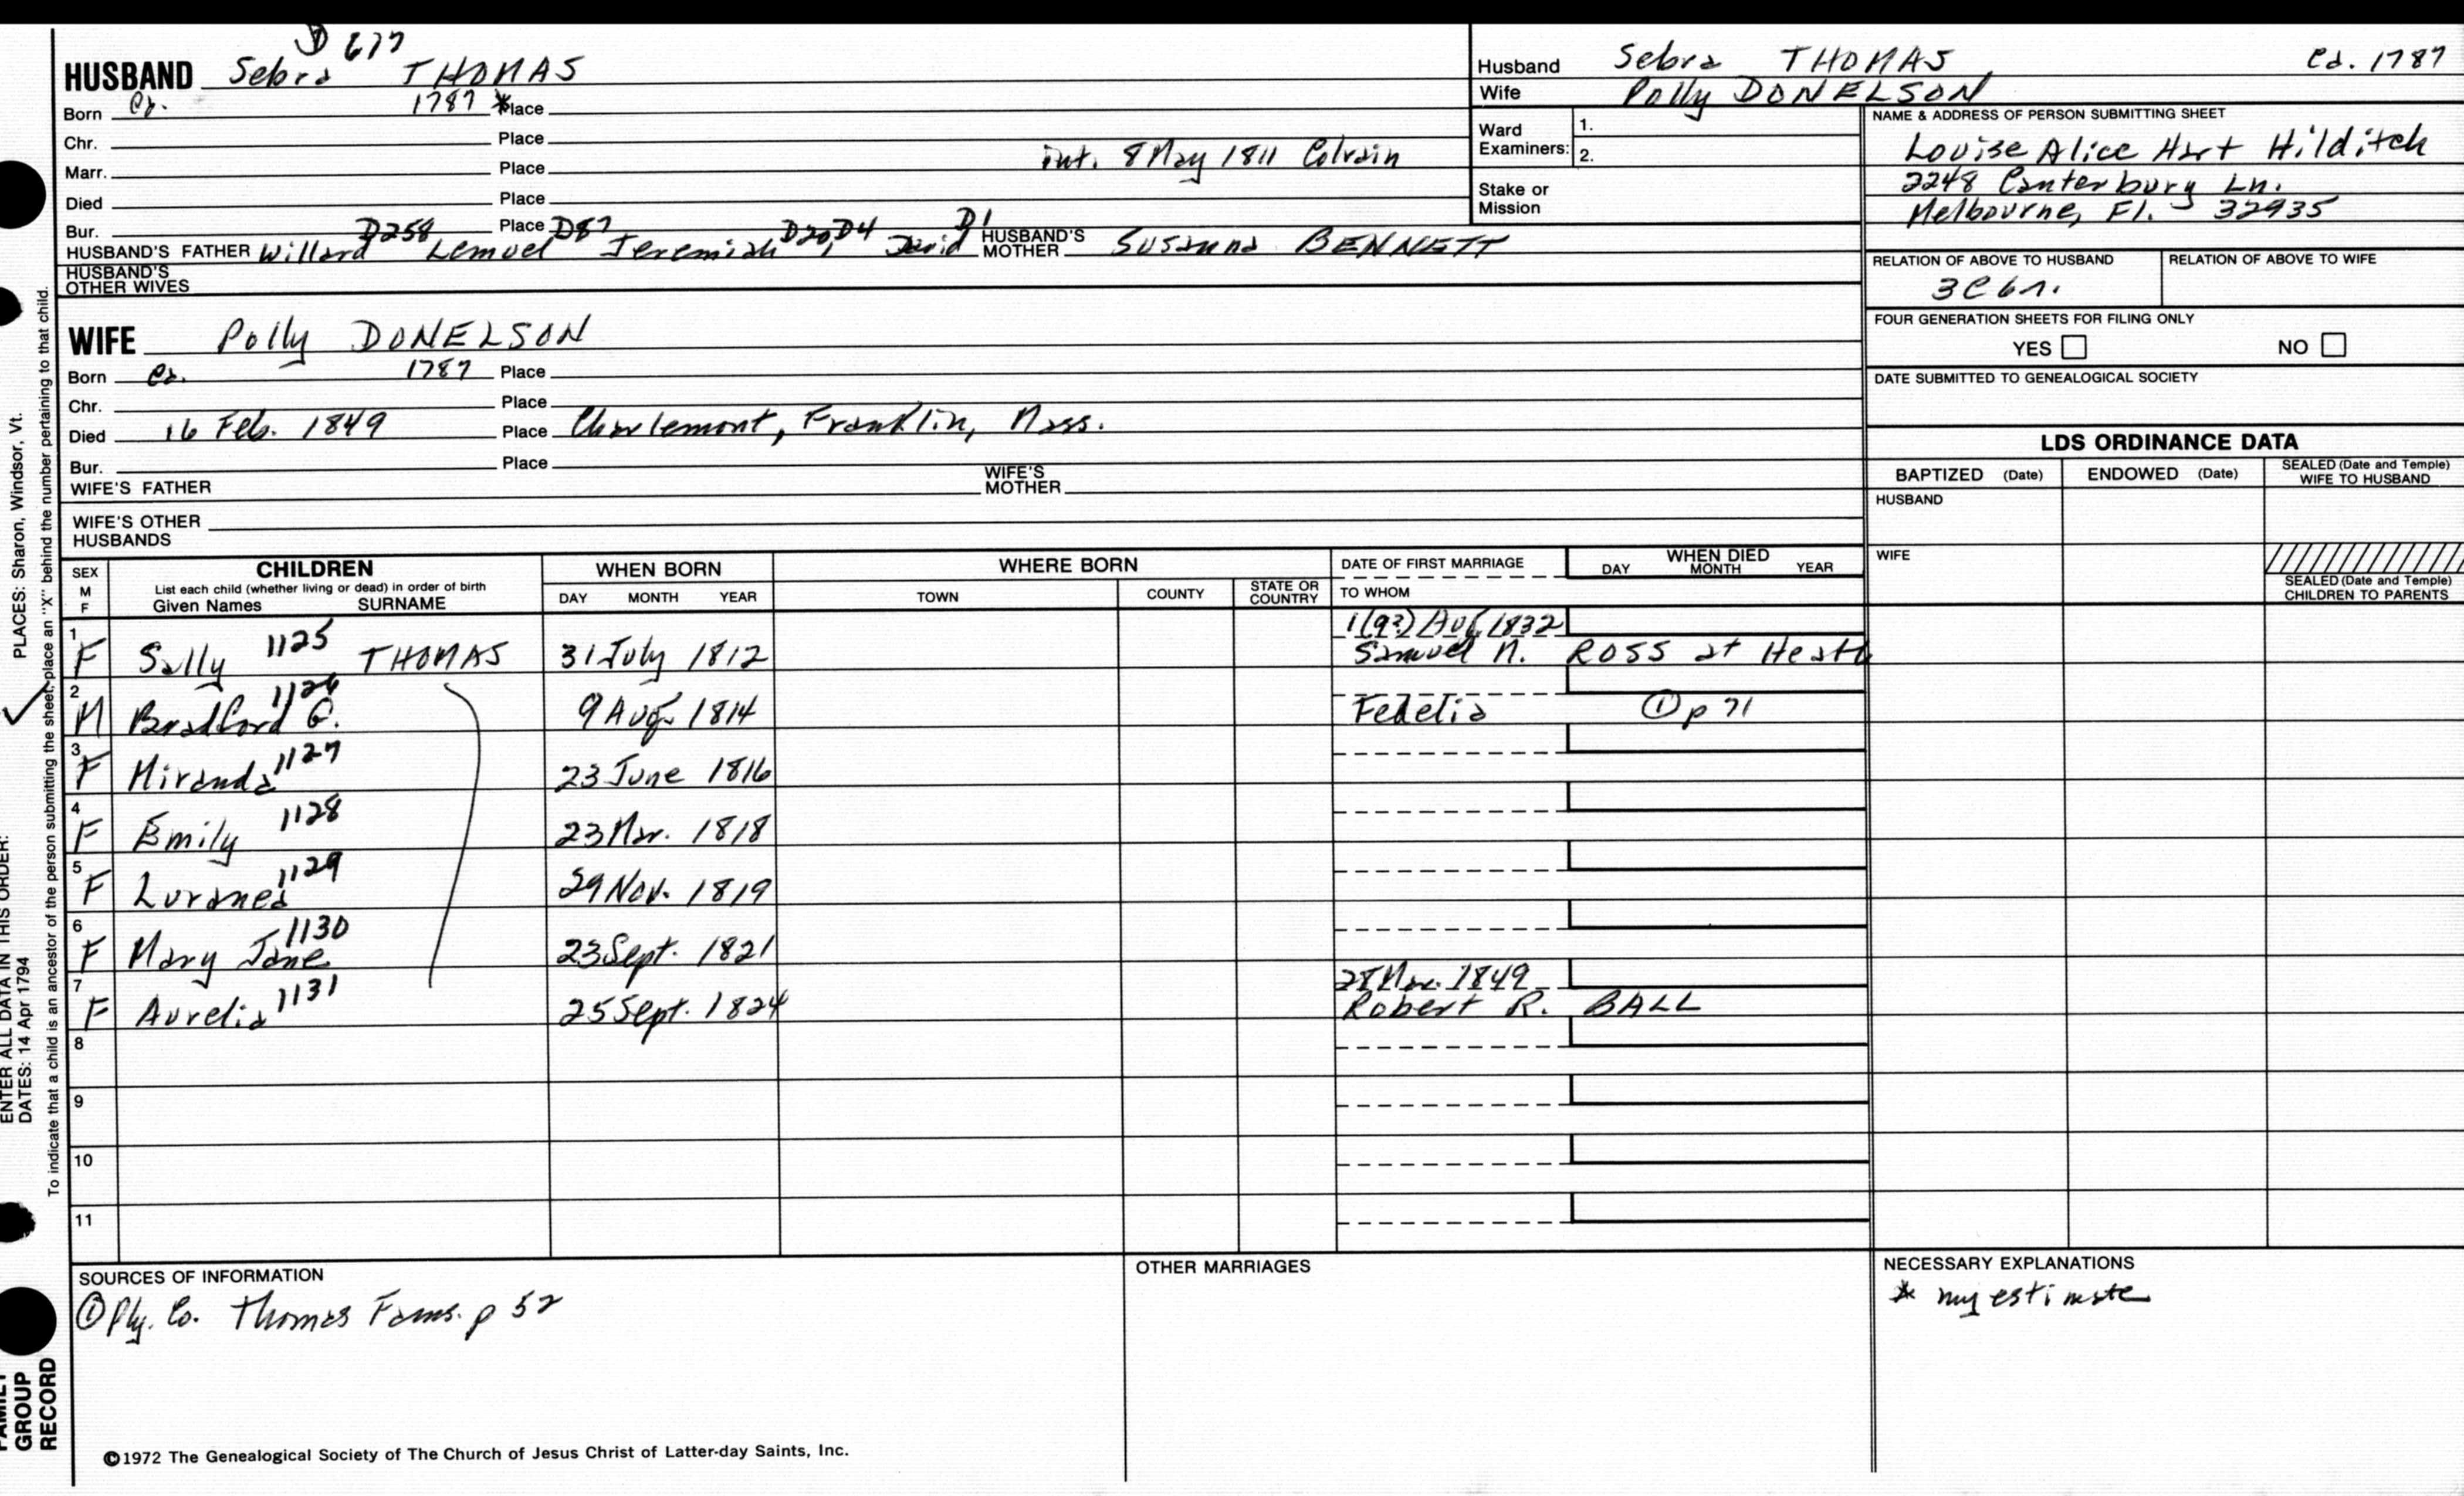 D 677
HUSBAND Sebra THOMAS
Born Ca. 1787 * Place
Chr. Place
Marr. Place int. 8 May 1811 Colrain
Died Place
Bur. Place
HUSBAND'S FATHER Willard D258 Lemuel D87 Jeremiah D20, D4 David D1 HUSBAND'S MOTHER Susanna BENNETT
HUSBAND'S OTHER WIVES
WIFE Polly DONELSON
Born Ca. 1787 Place
Chr. Place
Died 16 Feb. 1849 Place Charlemont, Franklin, Mass.
Bur. Place
WIFE'S FATHER WIFE'S MOTHER
WIFE'S OTHER HUSBANDS
Husband Sebra THOMAS Ca. 1787
Wife Polly DONELSON
Ward Examiners: 1.
2.
Stake or Mission
NAME & ADDRESS OF PERSON SUBMITTING SHEET
Louise Alice Hart Hilditch
2248 Canterbury Ln.
Melbourne, Fl. 32935
RELATION OF ABOVE TO HUSBAND RELATION OF ABOVE TO WIFE
3C6r.
FOUR GENERATION SHEETS FOR FILING ONLY
YES NO
DATE SUBMITTED TO GENEALOGICAL SOCIETY
LDS ORDINANCE DATA
BAPTIZED (Date) ENDOWED (Date) SEALED (Date and Temple) WIFE TO HUSBAND
HUSBAND
WIFE
SEALED (Date and Temple) CHILDREN TO PARENTS
SEX M F
CHILDREN
List each child (whether living or dead) in order of birth
Given Names SURNAME
WHEN BORN
DAY MONTH YEAR
WHERE BORN
TOWN COUNTY STATE OR COUNTRY
DATE OF FIRST MARRIAGE
TO WHOM
WHEN DIED
DAY MONTH YEAR
1 F Sally 1125 THOMAS 31 July 1812 1(9?) Aug 1832
Samuel N. ROSS at Heath
2 M Bradford Q. 1126 9 Aug. 1814 Fedelia ① p 71
3 F Miranda 1127 23 June 1816
4 F Emily 1128 23 Mar. 1818
5 F Luranea 1129 29 Nov. 1819
6 F Mary Jane 1130 23 Sept. 1821
7 F Aurelia 1131 25 Sept. 1824 28 Mar. 1849
Robert R. BALL
8
9
10
11
SOURCES OF INFORMATION
① Ply. Co. Thomas Fams. p 52
OTHER MARRIAGES
NECESSARY EXPLANATIONS
* my estimate
©1972 The Genealogical Society of The Church of Jesus Christ of Latter-day Saints, Inc.
FAMILY GROUP RECORD
ENTER ALL DATA IN THIS ORDER:
DATES: 14 Apr 1794
PLACES: Sharon, Windsor, Vt.
To indicate that a child is an ancestor of the person submitting the sheet, place an "X" behind the number pertaining to that child.